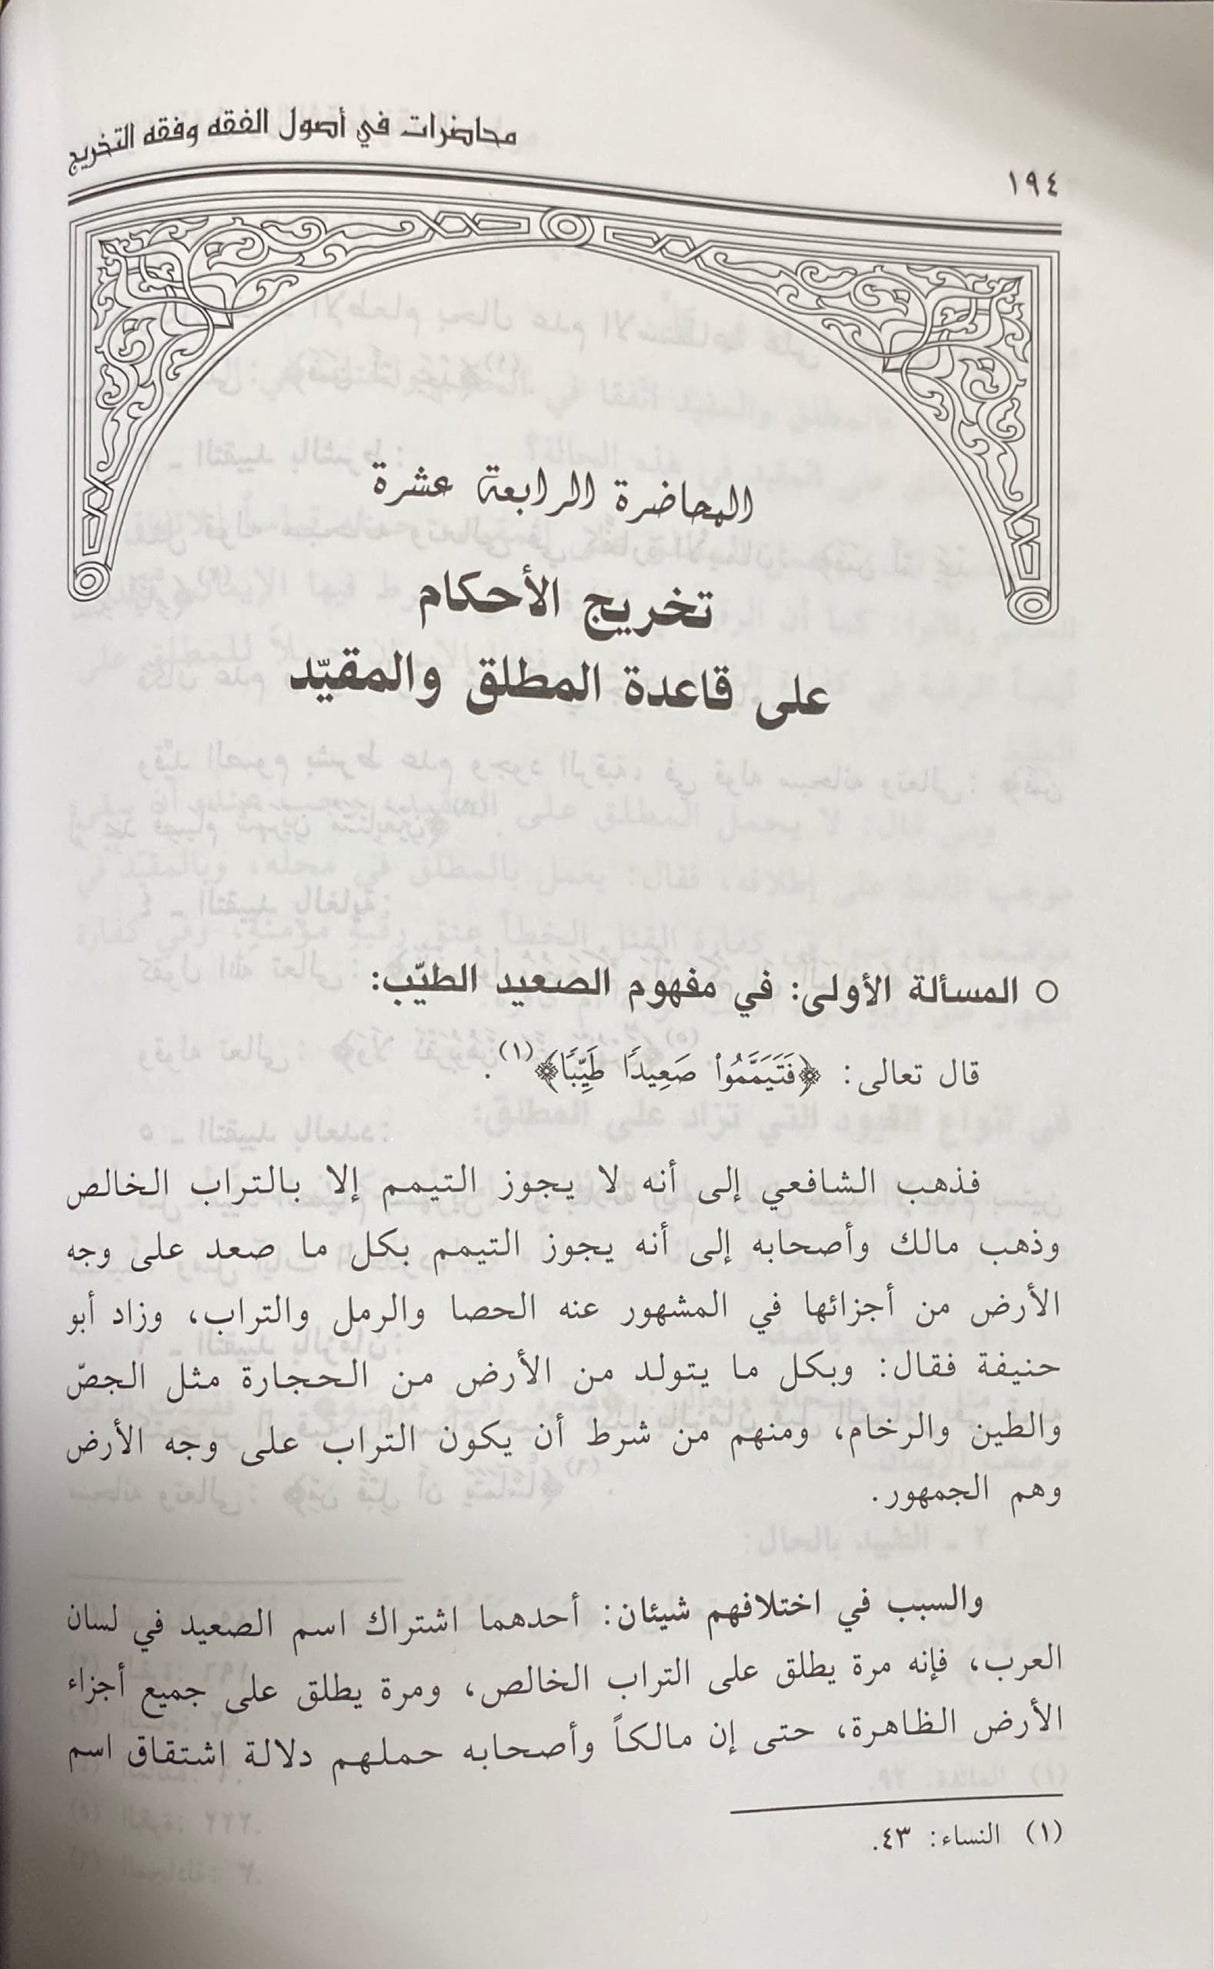 محاضرات في أصول الفقه وفقه التخريج
١٩٤
المحاضرة الرابعة عشرة
تخريج الأحكام
على قاعدة المطلق والمقيّد
○ المسألة الأولى: في مفهوم الصعيد الطيّب:
قال تعالى: ﴿فَتَيَمَّمُواْ صَعِيدًا طَيِّبًا﴾(١).
فذهب الشافعي إلى أنه لا يجوز التيمم إلا بالتراب الخالص
وذهب مالك وأصحابه إلى أنه يجوز التيمم بكل ما صعد على وجه
الأرض من أجزائها في المشهور عنه الحصا والرمل والتراب، وزاد أبو
حنيفة فقال: وبكل ما يتولد من الأرض من الحجارة مثل الجصّ
والطين والرخام، ومنهم من شرط أن يكون التراب على وجه الأرض
وهم الجمهور.
والسبب في اختلافهم شيئان: أحدهما اشتراك اسم الصعيد في لسان
العرب، فإنه مرة يطلق على التراب الخالص، ومرة يطلق على جميع أجزاء
الأرض الظاهرة، حتى إن مالكاً وأصحابه حملهم دلالة اشتقاق اسم
(١) النساء: ٤٣.